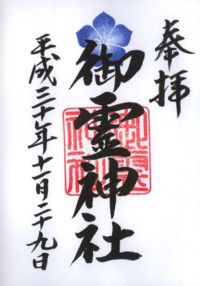 奉拝
御霊神社
平成三十年十一月二十九日